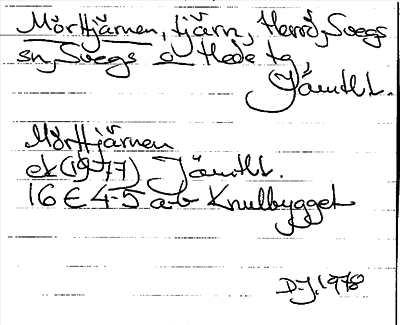 Mörttjärnen, tjärn, Herrö, Svegs
sn, Svegs o Hede tg,
Jämtl.
Mörttjärnen
ek (1977) Jämtl.
16 E 4-5 a-b Knulbygget
D.J. 1978